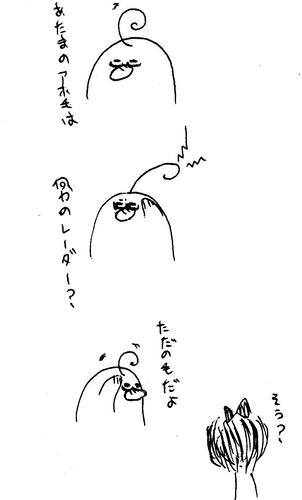 あたまのアホ毛は
何かのレーダー?、
ただの毛だよ
そう?、